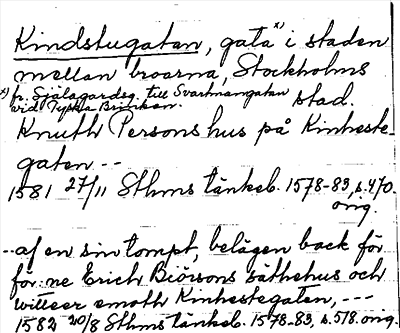 Kindstugatan, gata x) i staden
mellan broarna, Stockholms
x) fr. Själagårdsg. till Svartmangatan
vid Tyska Brinken. stad.
Knuth Persons hus på Kinheste-
gaten --
1581 27/11 Sthms tänkeb. 1578-83, s. 470.
orig.
-- af en sin tompt, belägen back för
för:ne Erich Biörsons säthehus och
willeer emoth Kinhestegaten, ---
1582 20/8 Sthms tänkeb. 1578-83, s. 518. orig.